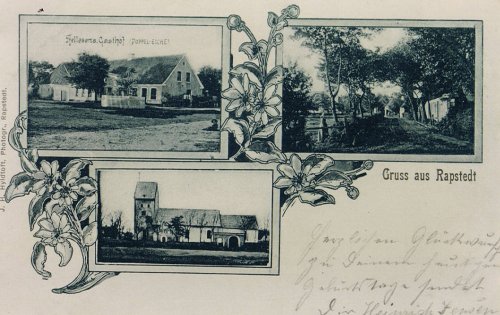 Hellesens Gasthof (DOPPEL-EICHE)
J. H. Hyldtoft, Photogr., Rapstedt.
Gruss aus Rapstedt
Herzlichen Glückwunsch
zu Deinem heutigen
Geburtstage sendet
Dir Heinrich Jensen